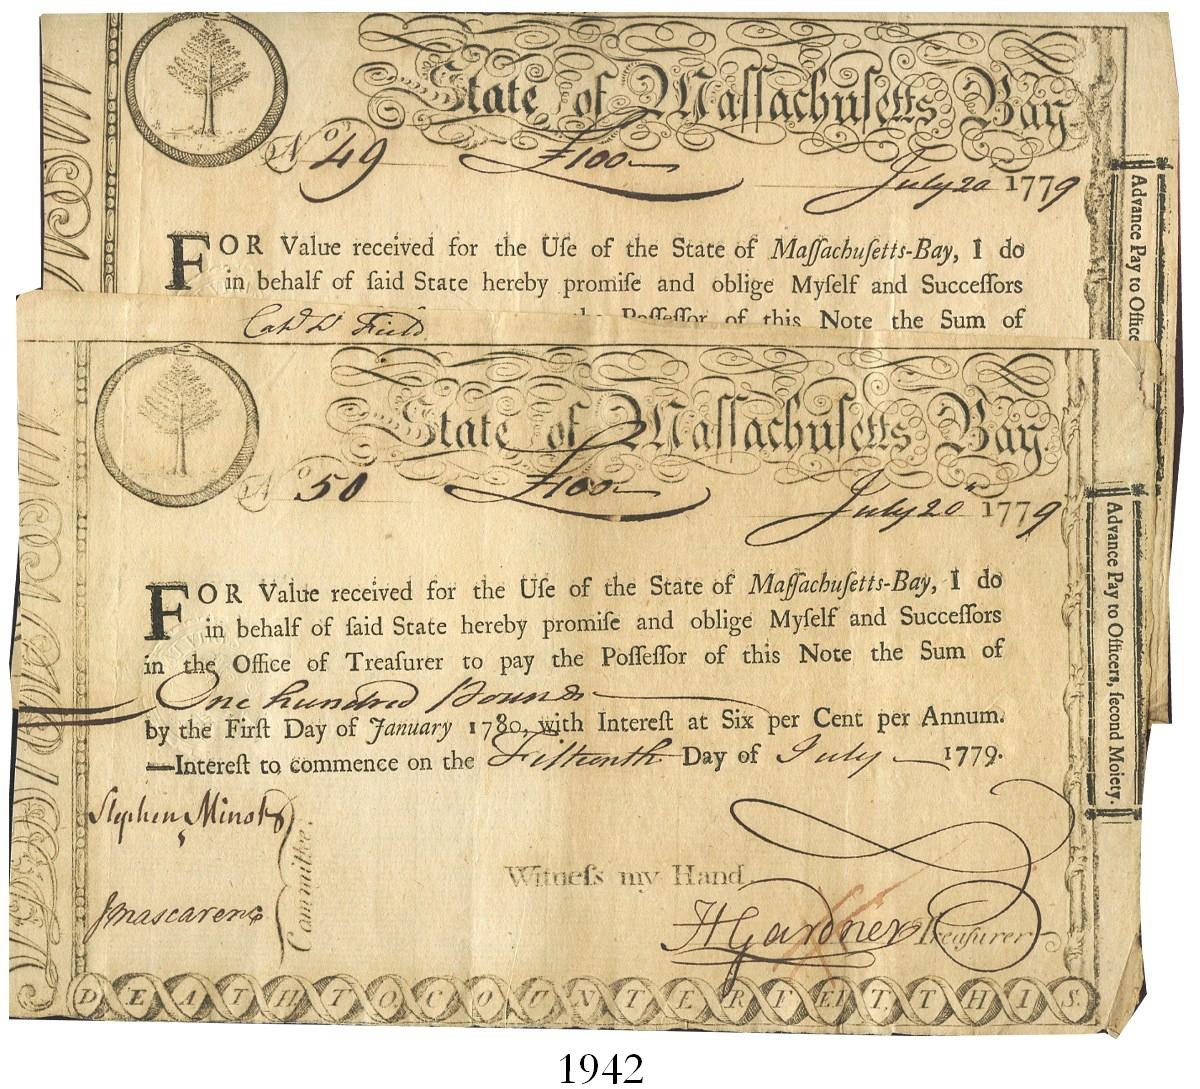 State of Massachusetts Bay
No 49 £100 July 20 1779
FOR Value received for the Uſe of the State of Maſſachuſetts-Bay, I do
in behalf of ſaid State hereby promiſe and oblige Myſelf and Succeſſors
the Poſſeſſor of this Note the Sum of
Advance Pay to Office
Field
State of Maſſachuſetts Bay
No 50 £100 July 20th 1779
FOR Value received for the Uſe of the State of Maſſachuſetts-Bay, I do
in behalf of ſaid State hereby promiſe and oblige Myſelf and Succeſſors
in the Office of Treaſurer to pay the Poſſeſſor of this Note the Sum of
One hundred Pounds
by the Firſt Day of January 1780, with Intereſt at Six per Cent per Annum.
—Intereſt to commence on the Fifteenth Day of July 1779.
Stephen Minot
J Mascarene
Committee.
Witneſs my Hand
H Gardner Treaſurer
Advance Pay to Officers, ſecond Moiety.
DEATH TO COUNTERFEIT THIS.
1942